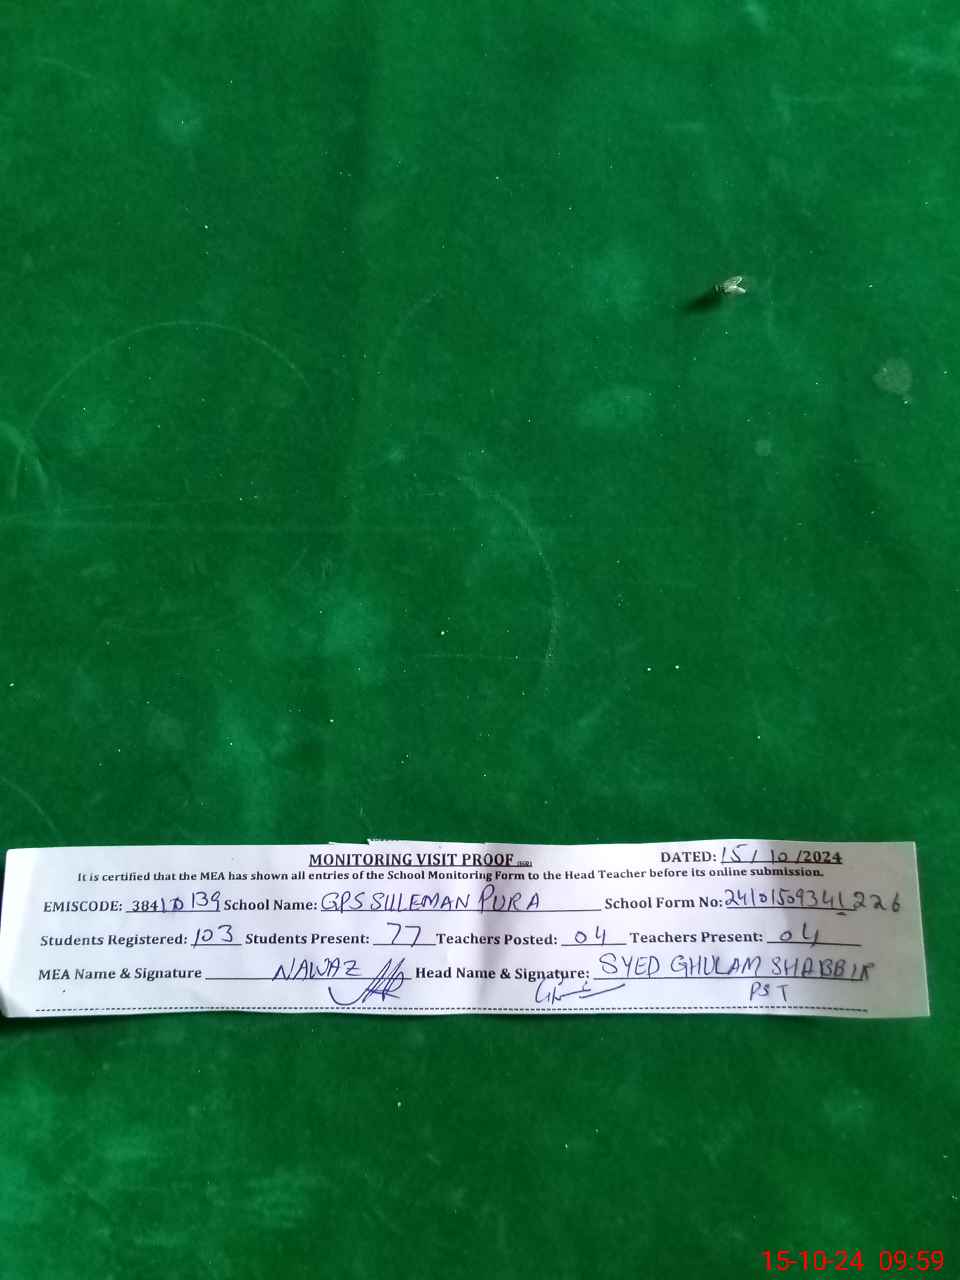 MONITORING VISIT PROOF DATED: 15/10/2024
It is certified that the MEA has shown all entries of the School Monitoring Form to the Head Teacher before its online submission.
EMISCODE: 38410139 School Name: GPS SULEMAN PURA School Form No: 24101509341226
Students Registered: 103 Students Present: 77 Teachers Posted: 04 Teachers Present: 04
MEA Name & Signature NAWAZ Head Name & Signature: SYED GHULAM SHABBIR
PST
15-10-24 09:59